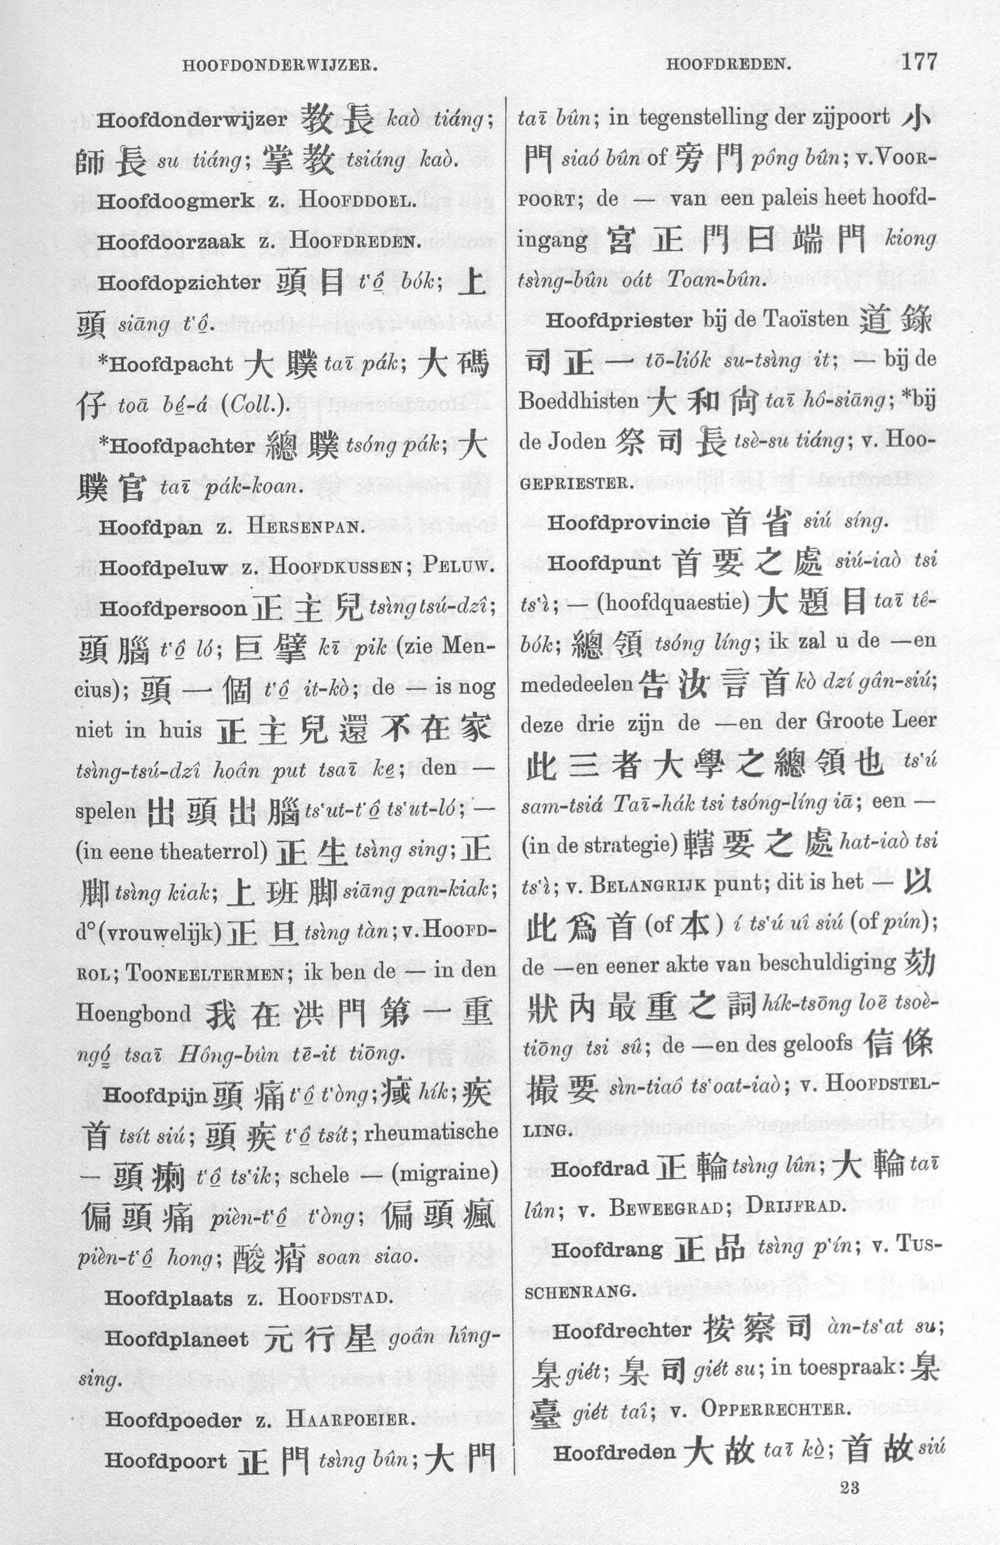 HOOFDONDERWIJZER.
HOOFDREDEN.
177
Hoofdonderwijzer 教長 kaò tiáng;
師長 su tiáng; 掌教 tsiáng kaò.
Hoofdoogmerk z. HOOFDDOEL.
Hoofdoorzaak z. HOOFDREDEN.
Hoofdopzichter 頭目 t‘ô̤ bók; 上
頭 siāng t‘ô̤.
*Hoofdpacht 大贌 taī pák; 大碼
仔 toā bé̤-á (Coll.).
*Hoofdpachter 總贌 tsóng pák; 大
贌官 taī pák-koan.
Hoofdpan z. HERSENPAN.
Hoofdpeluw z. HOOFDKUSSEN; PELUW.
Hoofdpersoon 正主兒 tsìng tsú-dzî;
頭腦 t‘ô̤ ló; 巨擘 kī pik (zie Men-
cius); 頭一個 t‘ô̤ it-kò; de — is nog
niet in huis 正主兒還不在家
tsìng-tsú-dzî hoân put tsaī ke̤; den —
spelen 出頭出腦 ts‘ut-t‘ô̤ ts‘ut-ló; —
(in eene theaterrol) 正生 tsìng sing; 正
脚 tsìng kiak; 上班脚 siāng pan-kiak;
d° (vrouwelijk) 正旦 tsìng tàn; v. HOOFD-
ROL; TOONEELTERMEN; ik ben de — in den
Hoengbond 我在洪門第一重
ngó̤ tsaī Hông-bûn tē-it tiōng.
Hoofdpijn 頭痛 t‘ô̤ t‘òng; 㽣 hík; 疾
首 tsít siú; 頭疾 t‘ô̤ tsít; rheumatische
— 頭瘌 t‘ô̤ ts‘ik; schele — (migraine)
偏頭痛 pièn-t‘ô̤ t‘òng; 偏頭瘋
pièn-t‘ô̤ hong; 酸痟 soan siao.
Hoofdplaats z. HOOFDSTAD.
Hoofdplaneet 元行星 goân hîng-
sing.
Hoofdpoeder z. HAARPOEIER.
Hoofdpoort 正門 tsìng bûn; 大門
taī bûn; in tegenstelling der zijpoort 小
門 siaó bûn of 旁門 pông bûn; v. VOOR-
POORT; de — van een paleis heet hoofd-
ingang 宮正門曰端門 kiong
tsìng-bûn oát Toan-bûn.
Hoofdpriester bij de Taoïsten 道錄
司正 — tō-liók su-tsìng it; — bij de
Boeddhisten 大和尙 taī hô-siāng; *bij
de Joden 祭司長 tsè-su tiáng; v. HOO-
GEPRIESTER.
Hoofdprovincie 首省 siú síng.
Hoofdpunt 首要之處 siú-iaò tsi
ts‘ì; — (hoofdquaestie) 大題目 taī tê-
bók; 總領 tsóng líng; ik zal u de —en
mededeelen 告汝言首 kò dzí gân-siú;
deze drie zijn de —en der Groote Leer
此三者大學之總領也 ts‘ú
sam-tsiá Taī-hák tsi tsóng-líng iā; een —
(in de strategie) 轄要之處 hat-iaò tsi
ts‘ì; v. BELANGRIJK punt; dit is het — 以
此爲首 (of 本) í ts‘ú uî siú (of pún);
de —en eener akte van beschuldiging 劾
狀內最重之詞 hík-tsōng loē tsoè-
tiōng tsi sû; de —en des geloofs 信條
撮要 sìn-tiaô ts‘oat-iaò; v. HOOFDSTEL-
LING.
Hoofdrad 正輪 tsìng lûn; 大輪 taī
lûn; v. BEWEEGRAD; DRIJFRAD.
Hoofdrang 正品 tsìng p‘ín; v. TUS-
SCHENRANG.
Hoofdrechter 按察司 àn-ts‘at su;
臬 giét; 臬司 giét su; in toespraak: 臬
臺 giét taî; v. OPPERRECHTER.
Hoofdreden 大故 taī kò̤; 首故 siú
23